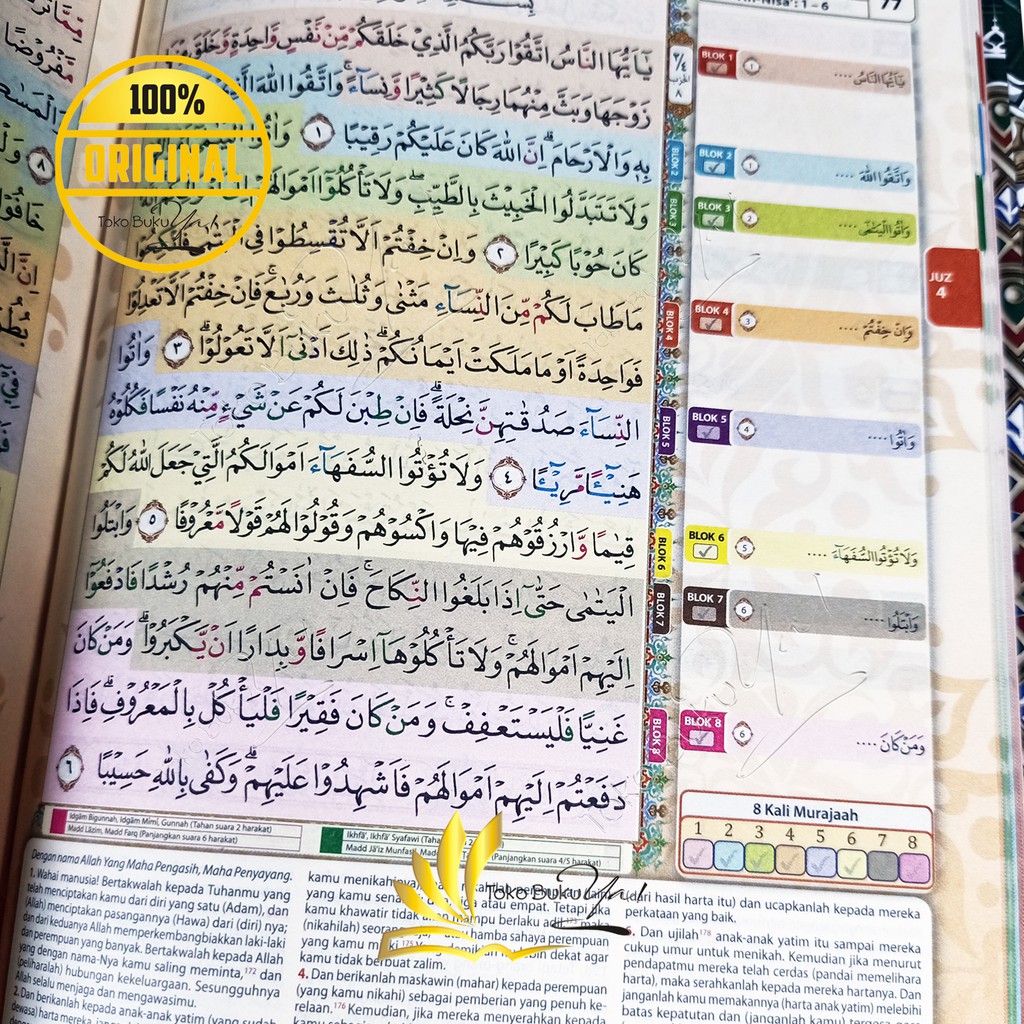 An-Nisa': 1 - 6
77
يٰٓاَيُّهَا النَّاسُ اتَّقُوْا رَبَّكُمُ الَّذِيْ خَلَقَكُمْ مِّنْ نَّفْسٍ وَّاحِدَةٍ وَّخَلَقَ مِنْهَا
زَوْجَهَا وَبَثَّ مِنْهُمَا رِجَالًا كَثِيْرًا وَّنِسَاۤءً ۚ وَاتَّقُوا اللّٰهَ الَّذِيْ
بِهٖ وَالْاَرْحَامَ ۗ اِنَّ اللّٰهَ كَانَ عَلَيْكُمْ رَقِيْبًا ١ وَاٰتُوا الْيَتٰمٰٓى
وَلَا تَتَبَدَّلُوا الْخَبِيْثَ بِالطَّيِّبِ ۖ وَلَا تَأْكُلُوْٓا اَمْوَالَهُمْ
كَانَ حُوْبًا كَبِيْرًا ٢ وَاِنْ خِفْتُمْ اَلَّا تُقْسِطُوْا فِى الْيَتٰمٰى فَانْكِحُوْا
مَا طَابَ لَكُمْ مِّنَ النِّسَاۤءِ مَثْنٰى وَثُلٰثَ وَرُبٰعَ ۚ فَاِنْ خِفْتُمْ اَلَّا تَعْدِلُوْا
فَوَاحِدَةً اَوْ مَا مَلَكَتْ اَيْمَانُكُمْ ۗ ذٰلِكَ اَدْنٰٓى اَلَّا تَعُوْلُوْا ۗ ٣ وَاٰتُوا
النِّسَاۤءَ صَدُقٰتِهِنَّ نِحْلَةً ۗ فَاِنْ طِبْنَ لَكُمْ عَنْ شَيْءٍ مِّنْهُ نَفْسًا فَكُلُوْهُ
هَنِيْۤـًٔا مَّرِيْۤـًٔا ٤ وَلَا تُؤْتُوا السُّفَهَاۤءَ اَمْوَالَكُمُ الَّتِيْ جَعَلَ اللّٰهُ لَكُمْ
قِيٰمًا وَّارْزُقُوْهُمْ فِيْهَا وَاكْسُوْهُمْ وَقُوْلُوْا لَهُمْ قَوْلًا مَّعْرُوْفًا ٥ وَابْتَلُوا
الْيَتٰمٰى حَتّٰىٓ اِذَا بَلَغُوا النِّكَاحَ ۚ فَاِنْ اٰنَسْتُمْ مِّنْهُمْ رُشْدًا فَادْفَعُوْٓا
اِلَيْهِمْ اَمْوَالَهُمْ ۚ وَلَا تَأْكُلُوْهَآ اِسْرَافًا وَّبِدَارًا اَنْ يَّكْبَرُوْا ۗ وَمَنْ كَانَ
غَنِيًّا فَلْيَسْتَعْفِفْ ۚ وَمَنْ كَانَ فَقِيْرًا فَلْيَأْكُلْ بِالْمَعْرُوْفِ ۗ فَاِذَا
دَفَعْتُمْ اِلَيْهِمْ اَمْوَالَهُمْ فَاَشْهِدُوْا عَلَيْهِمْ ۗ وَكَفٰى بِاللّٰهِ حَسِيْبًا ٦
BLOK 1 ١ يٰٓاَيُّهَا النَّاسُ ....
BLOK 2 ١ وَاتَّقُوا اللّٰهَ ....
BLOK 3 2 وَاٰتُوا الْيَتٰمٰٓى ....
BLOK 4 3 وَاِنْ خِفْتُمْ ....
BLOK 5 4 وَاٰتُوا ....
BLOK 6 5 وَلَا تُؤْتُوا السُّفَهَاۤءَ ....
BLOK 7 6 وَابْتَلُوا ....
BLOK 8 6 وَمَنْ كَانَ ....
BLOK 2
BLOK 3
BLOK 4
BLOK 5
BLOK 6
BLOK 7
BLOK 8
JUZ
4
8 Kali Murajaah
1 2 3 4 5 6 7 8
100%
ORIGINAL
Toko Buku
Idgām Bigunnah, Idgām Mimi, Gunnah (Tahan suara 2 harakat)
Madd Lāzim, Madd Farq (Panjangkan suara 6 harakat)
Ikhfā', Ikhfā' Syafawi
Madd Jā'iz Munfaṣil, (Panjangkan suara 4/5 harakat)
Dengan nama Allah Yang Maha Pengasih, Maha Penyayang.
1. Wahai manusia! Bertakwalah kepada Tuhanmu yang
telah menciptakan kamu dari diri yang satu (Adam), dan
(Allah) menciptakan pasangannya (Hawa) dari (diri) nya;
dan dari keduanya Allah memperkembangbiakkan laki-laki
dan perempuan yang banyak. Bertakwalah kepada Allah
yang dengan nama-Nya kamu saling meminta,172 dan
(peliharalah) hubungan kekeluargaan. Sesungguhnya
Allah selalu menjaga dan mengawasimu.
2. Dan berikanlah kepada anak-anak yatim (yang sudah
kamu menikahinya),
kamu khawatir tidak akan mampu berlaku adil,
(nikahilah) seorang hamba sahaya perempuan
yang kamu miliki.175 lebih dekat agar
kamu tidak berbuat zalim.
4. Dan berikanlah maskawin (mahar) kepada perempuan
(yang kamu nikahi) sebagai pemberian yang penuh ke-
relaan.176 Kemudian, jika mereka menyerahkan kepada
Toko Buku
(dari hasil harta itu) dan ucapkanlah kepada mereka
perkataan yang baik.
6. Dan ujilah178 anak-anak yatim itu sampai mereka
cukup umur untuk menikah. Kemudian jika menurut
pendapatmu mereka telah cerdas (pandai memelihara
harta), maka serahkanlah kepada mereka hartanya. Dan
janganlah kamu memakannya (harta anak yatim) melebihi
batas kepatutan dan (janganlah kamu)